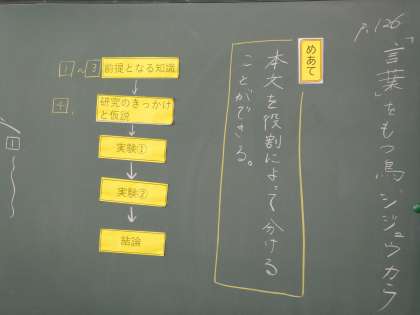 P.126
「言葉」をもつ鳥、シジュウカラ
めあて
本文を役割によって分ける
ことができる。
1~3 前提となる知識
4. 研究のきっかけ
と仮説
実験①
実験②
結論
1